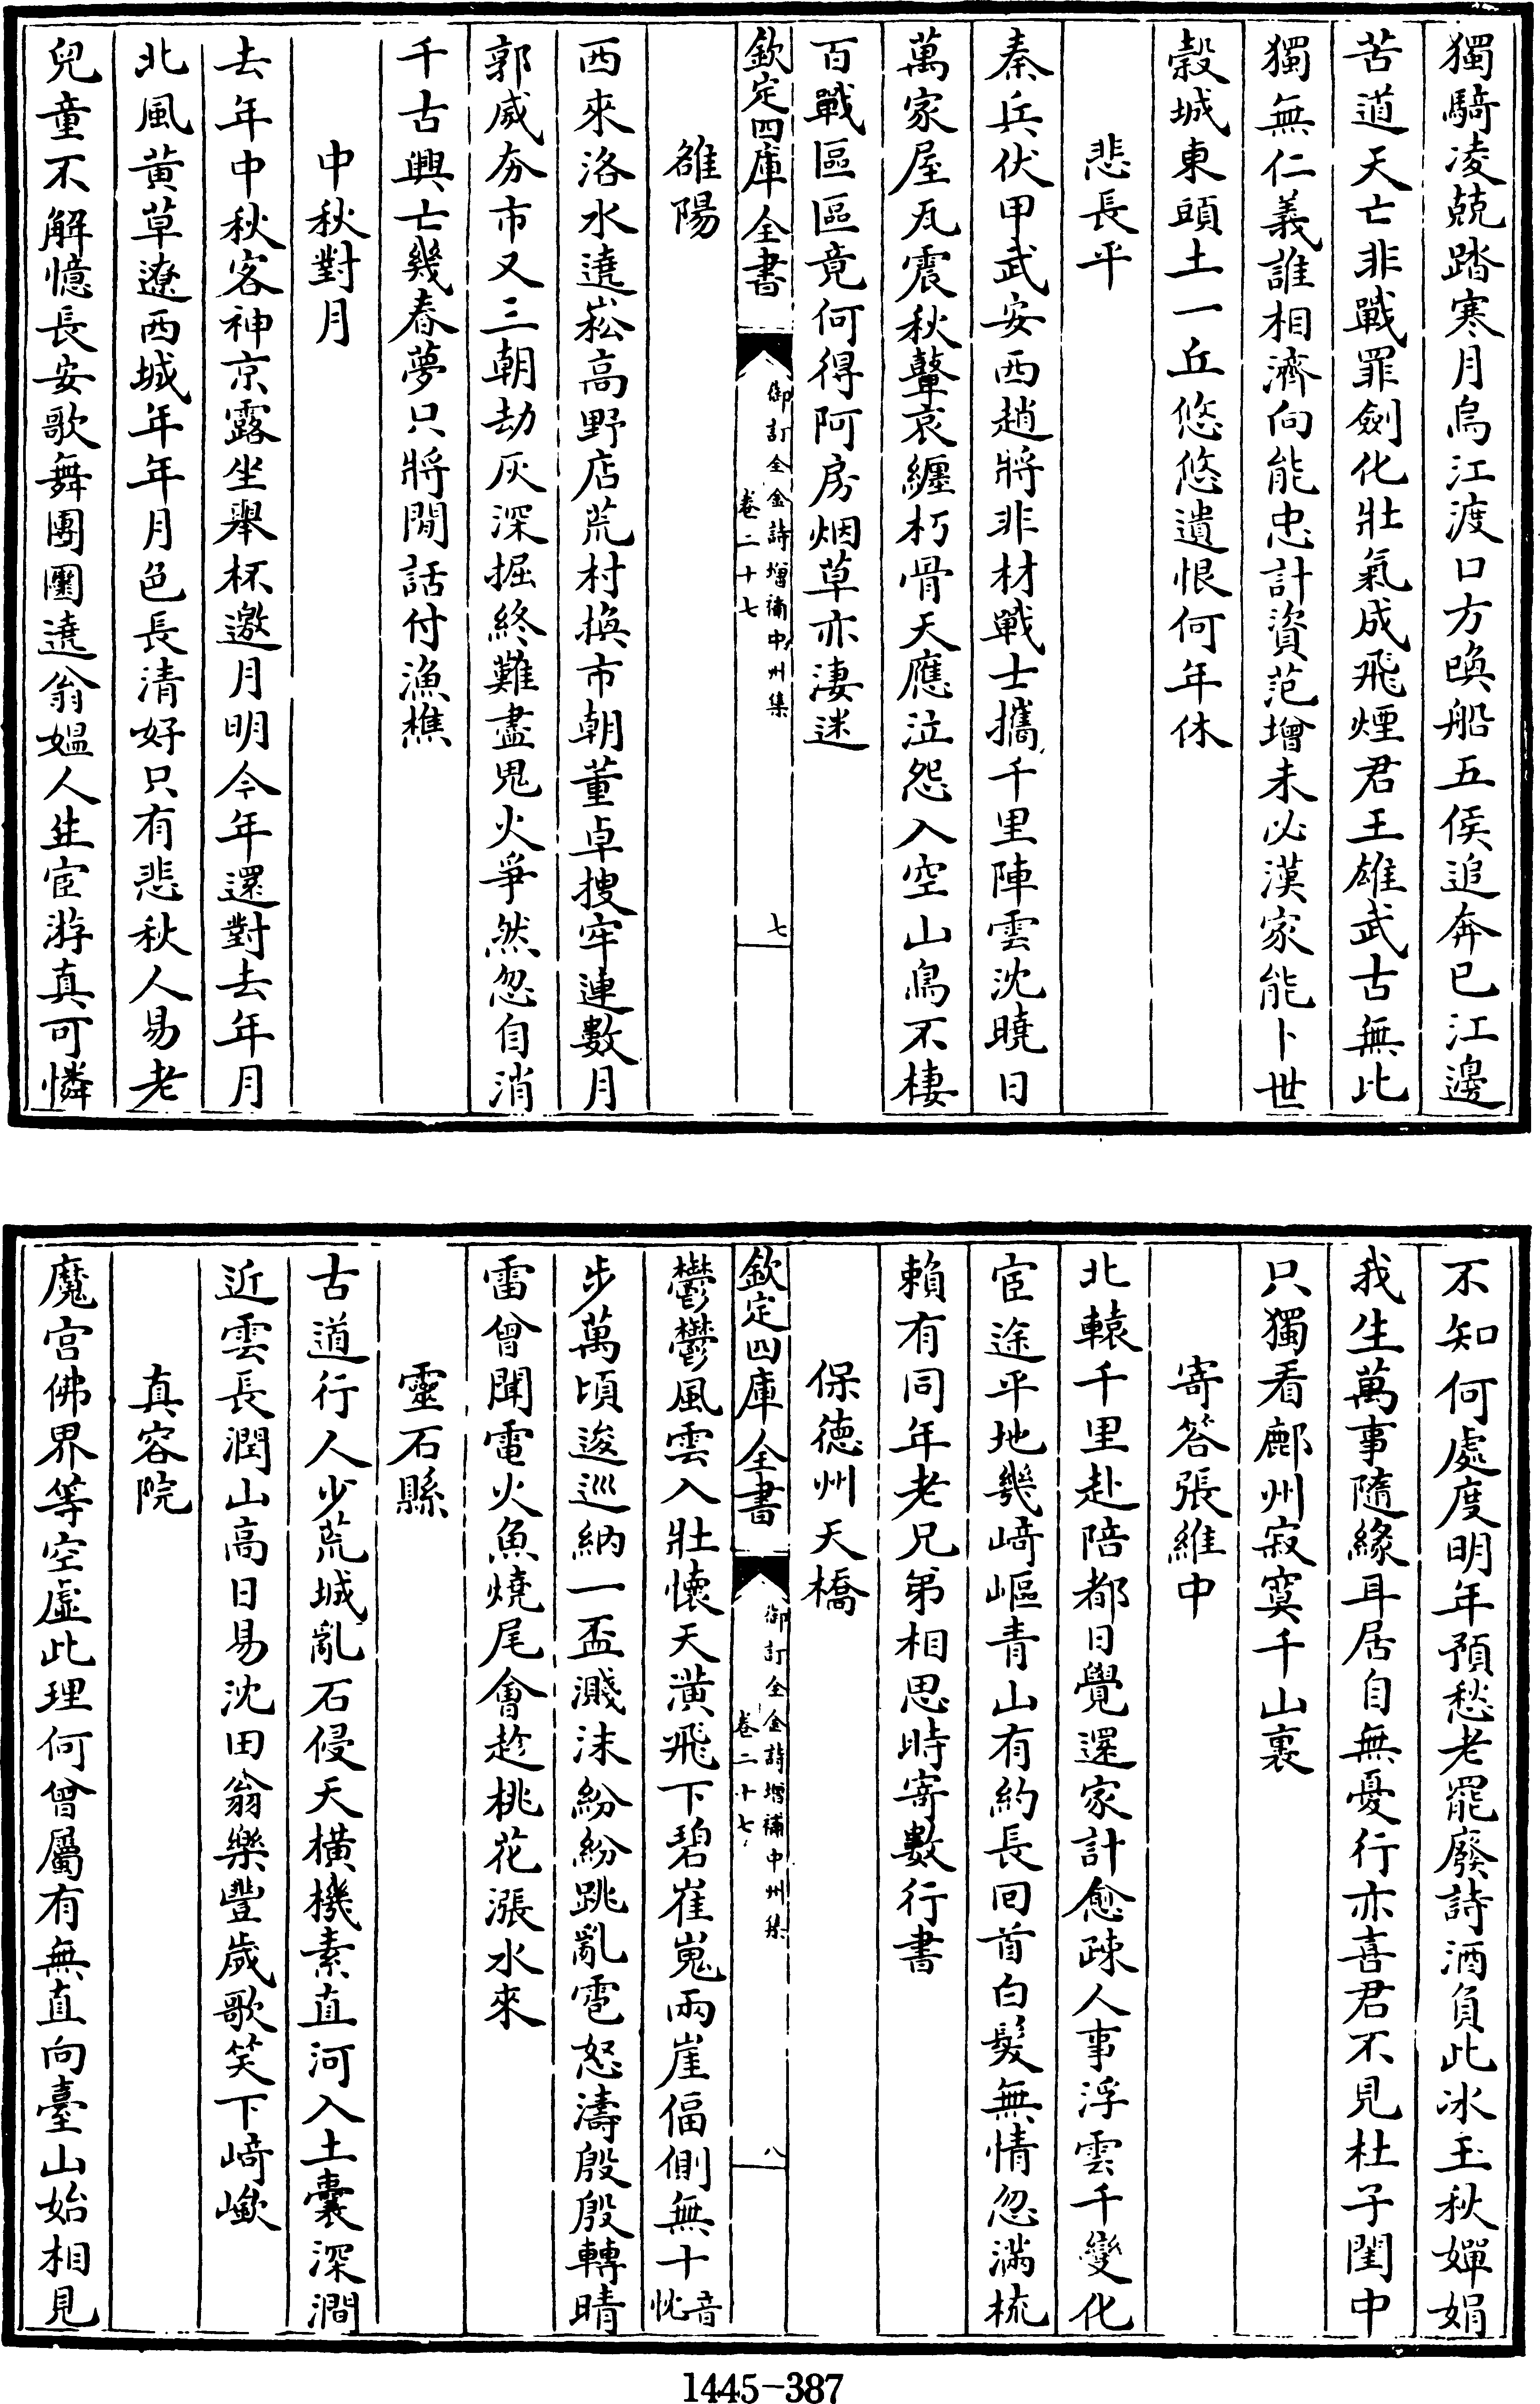 獨騎凌兢踏寒月烏江渡口方喚船五侯追奔已江邊
苦道天亡非戰罪劍化壯氣成飛煙君王雄武古無比
獨無仁義誰相濟向能忠計資范增未必漢家能卜世
穀城東頭土一丘悠悠遺恨何年休
悲長平
秦兵伏甲武安西趙將非材戰士攜千里陣雲沈曉日
萬家屋瓦震秋鼙哀纏朽骨天應泣怨入空山鳥不棲
百戰區區竟何得阿房烟草亦淒迷
欽定四庫全書
御訂全金詩增補中州集
卷二十七
七
雒陽
西來洛水遶崧高野店荒村換市朝董卓搜牢連數月
郭威夯市又三朝劫灰深掘終難盡鬼火爭然忽自消
千古興亡幾春夢只將閒話付漁樵
中秋對月
去年中秋客神京露坐舉杯邀月明今年還對去年月
北風黃草遼西城年年月色長清好只有悲秋人易老
兒童不解憶長安歌舞團團遶翁媼人生宦游真可憐
不知何處度明年預愁老罷廢詩酒負此冰玉秋嬋娟
我生萬事隨緣耳居自無憂行亦喜君不見杜子閨中
只獨看鄜州寂寞千山裏
寄答張維中
北轅千里赴陪都日覺還家計愈疎人事浮雲千變化
宦途平地幾崎嶇青山有約長回首白髮無情忽滿梳
賴有同年老兄弟相思時寄數行書
保德州天橋
欽定四庫全書
御訂全金詩增補中州集
卷二十七
八
鬱鬱風雲入壯懷天潢飛下碧崔嵬兩崖偪側無十音忱
步萬頃逡巡納一盃濺沫紛紛跳亂雹怒濤殷殷轉晴
雷曾聞電火魚燒尾會趁桃花漲水來
靈石縣
古道行人少荒城亂石侵天橫機素直河入土囊深澗
近雲長潤山高日易沈田翁樂豐歲歌笑下崎嶔
真容院
魔宫佛界等空虛此理何曾屬有無直向臺山始相見
1445-387